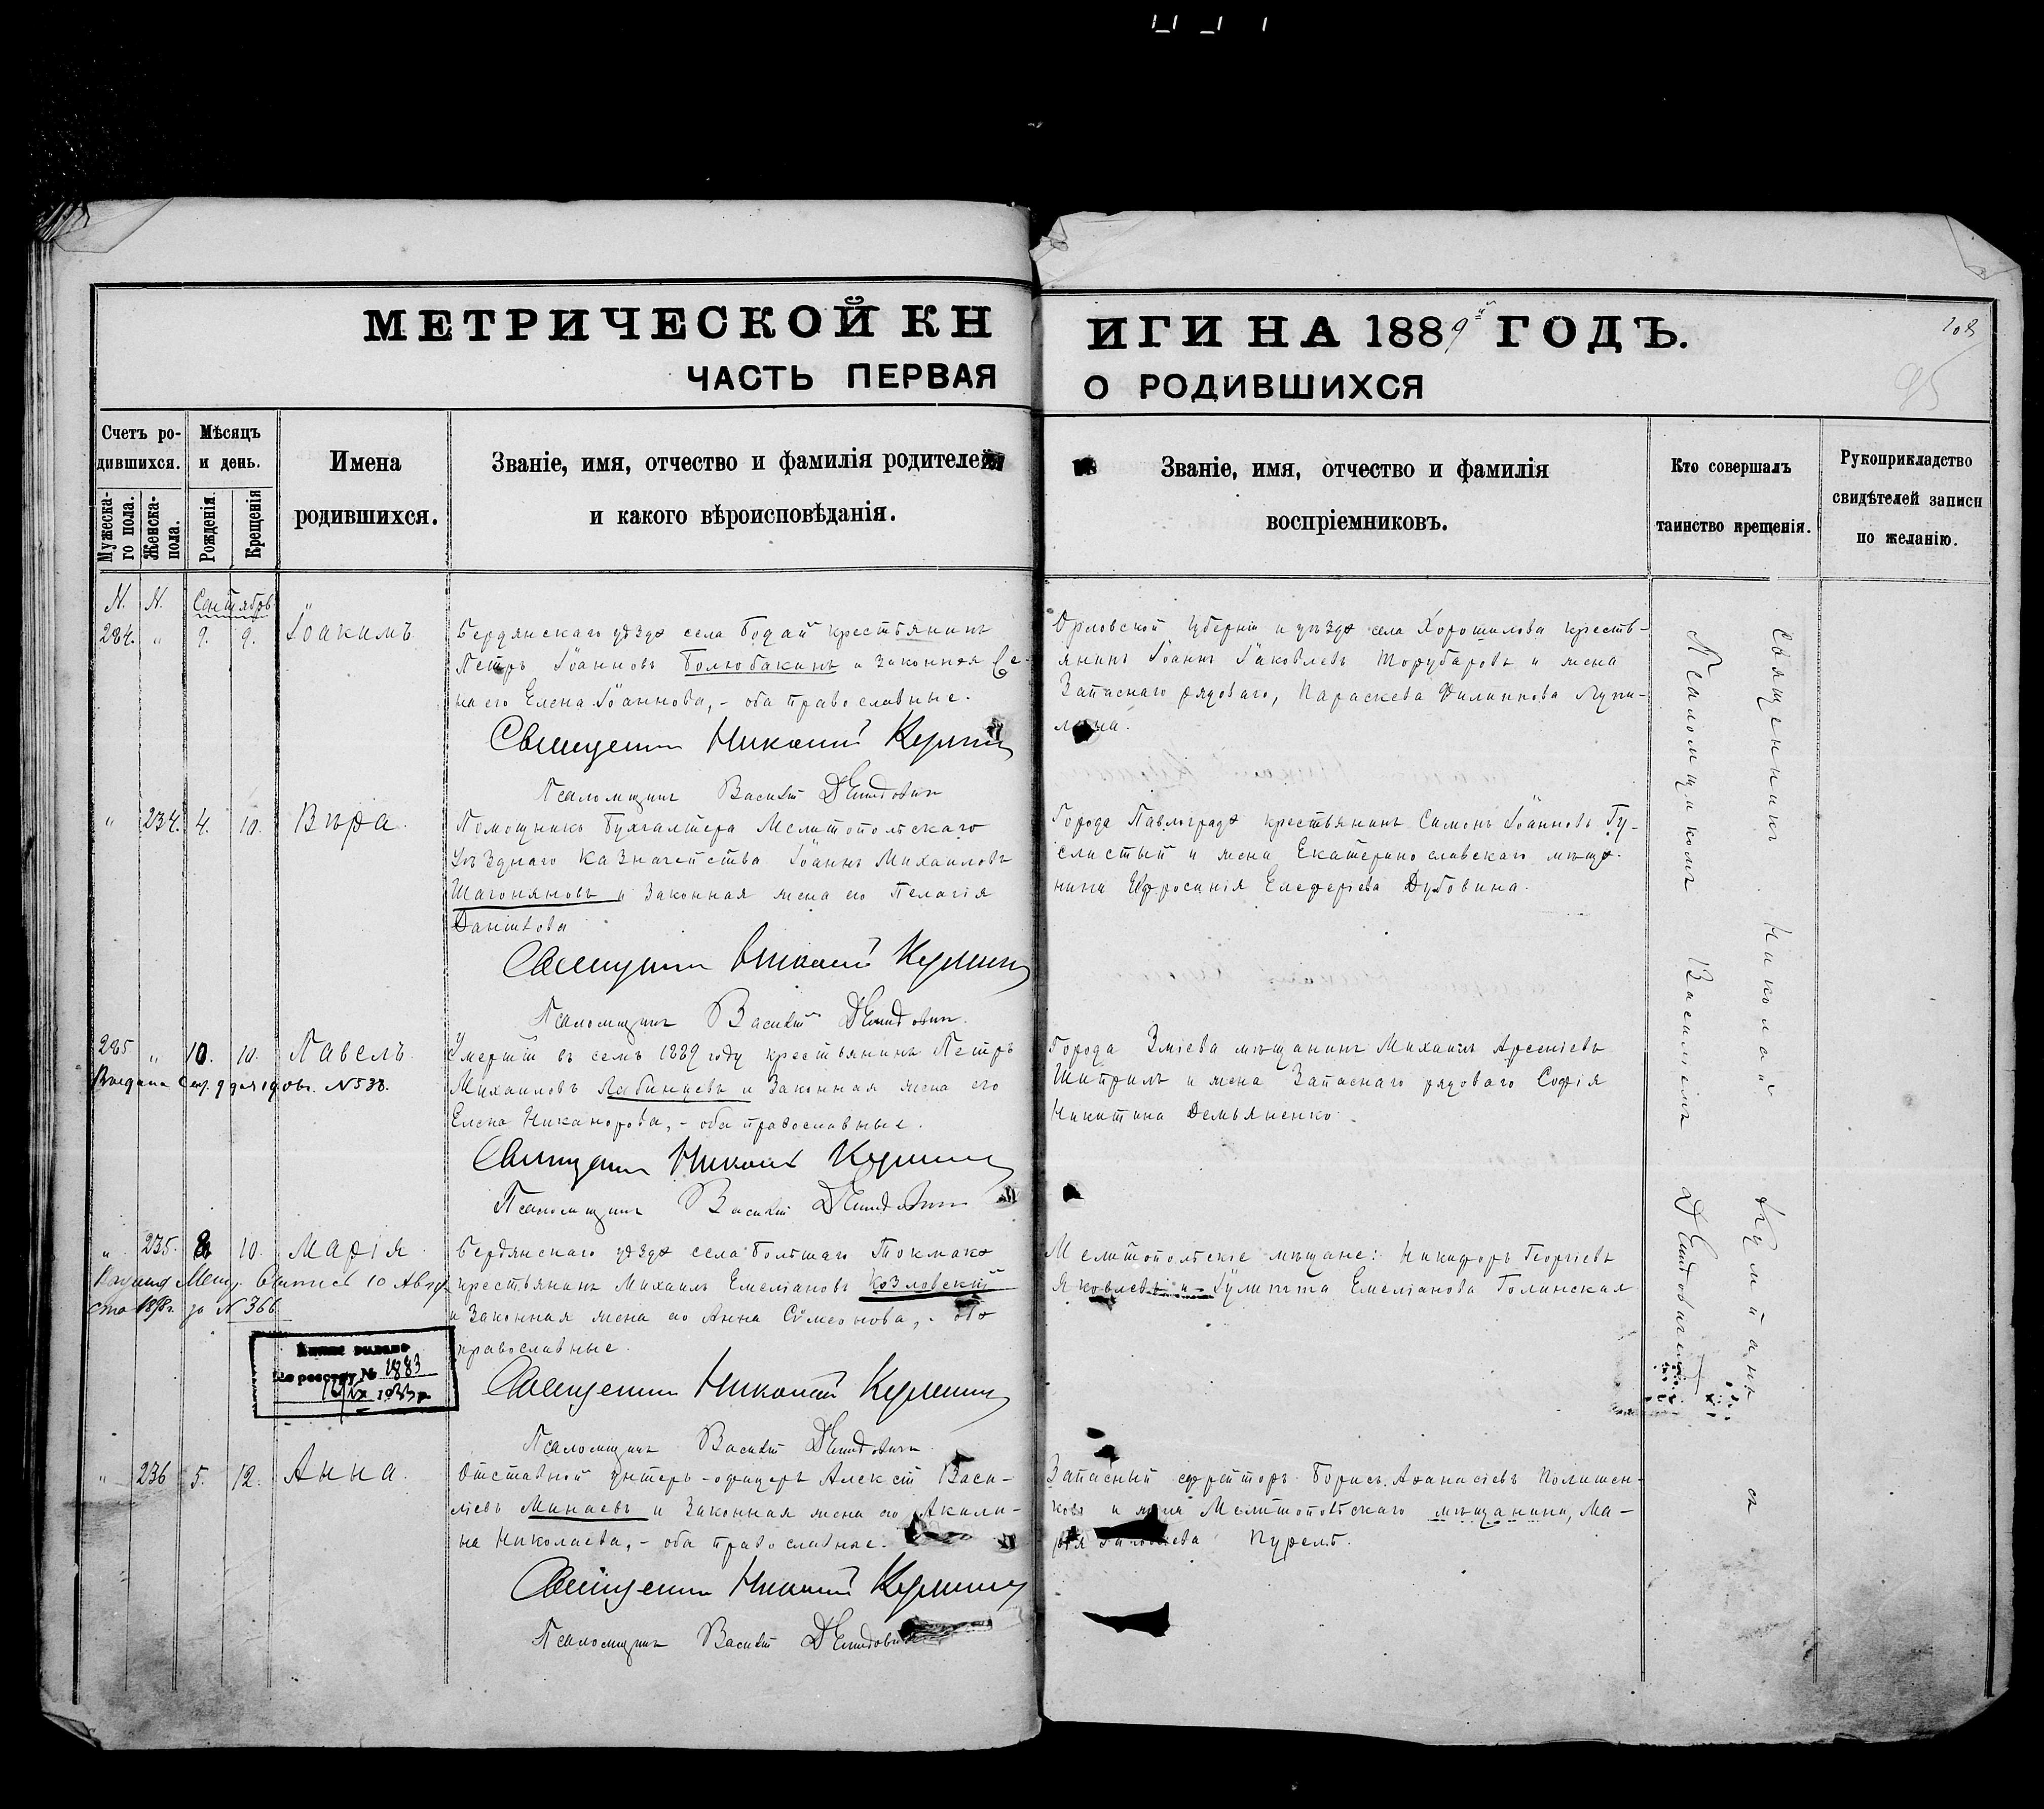 МЕТРИЧЕСКОЙ КН
ИГИ НА 1889й ГОДЪ.
ЧАСТЬ ПЕРВАЯ
О РОДИВШИХСЯ
95
Счетъ ро-
дившихся.
Мужеска-
го пола.
Женска-
пола.
Мѣсяцъ
и день.
Рожденія.
Крещенія
Имена
родившихся.
Званіе, имя, отчество и фамилія родителей
и какого вѣроисповѣданія.
Званіе, имя, отчество и фамилія
воспріемниковъ.
Кто совершалъ
таинство крещенія.
Рукоприкладство
свидѣтелей записи
по желанію.
N. N. Сентябрь
284. " 9. 9. Іоакимъ
Бердянскаго уѣзда села крестьянинъ
Петръ Іоанновъ Болюбакинъ и законная же-
на его Елена Іоаннова, - оба православные.
Священникъ Николай
Псаломщикъ Василій Демидовичъ
Орловской губерніи и уѣзда села Хорошилова кресть-
янинъ Іоаннъ Іаковлевъ Торубаровъ и жена
Запаснаго рядоваго, Параскева Филиппова
" 234. 4. 10. Вѣра.
Помощникъ бухгалтера Мелитопольскаго
уѣзднаго Казначейства Іоаннъ Михаиловъ
Шагоняновъ и законная жена его Пелагія
Даніилова
Священникъ Николай
Псаломщикъ Василій Демидовичъ.
Города Павлограда крестьянинъ Симонъ Іоанновъ Гу-
слистый и жена Екатеринославскаго мѣща-
нина Евфросинія Елеферіева Дубовина.
285 " 10. 10. Павелъ.
N 538.
Умершій въ семъ 1889 году крестьянинъ Петръ
Михаиловъ Лабинцевъ и законная жена его
Елена Никанорова, - оба православные.
Священникъ Николай
Псаломщикъ Василій Демидовичъ
Города Зміева мѣщанинъ Михаилъ Арсеніевъ
и жена Запаснаго рядоваго Софія
Никитина Демьяненко.
" 235. 8 10. Марія.
10 Авгу-
ста 1898г. за N 366
по реестру № 1883
Бердянскаго уѣзда села Большаго Токмака
крестьянинъ Михаилъ Емеліановъ Козловскій
и законная жена его Анна Сѵмеонова, - оба
православные.
Священникъ Николай
Псаломщикъ Василій Демидовичъ.
Мелитопольскіе мѣщане: Никифоръ Георгіевъ
Яковлевъ и Іулитта Емеліанова Голинская
" 236 5. 12. Анна.
Отставной унтеръ-офицеръ Алексѣй Васи-
ліевъ Минаевъ и законная жена его Акили-
на Николаева, - оба православные.
Священникъ Николай
Псаломщикъ Василій Демидовичъ
Запасный ефрейторъ Борисъ Аѳанасіевъ Полишен-
ковъ и жена Мелитопольскаго мѣщанина, Ма-
рія
Священникъ Николай
Псаломщикомъ Василіемъ Демидовичемъ